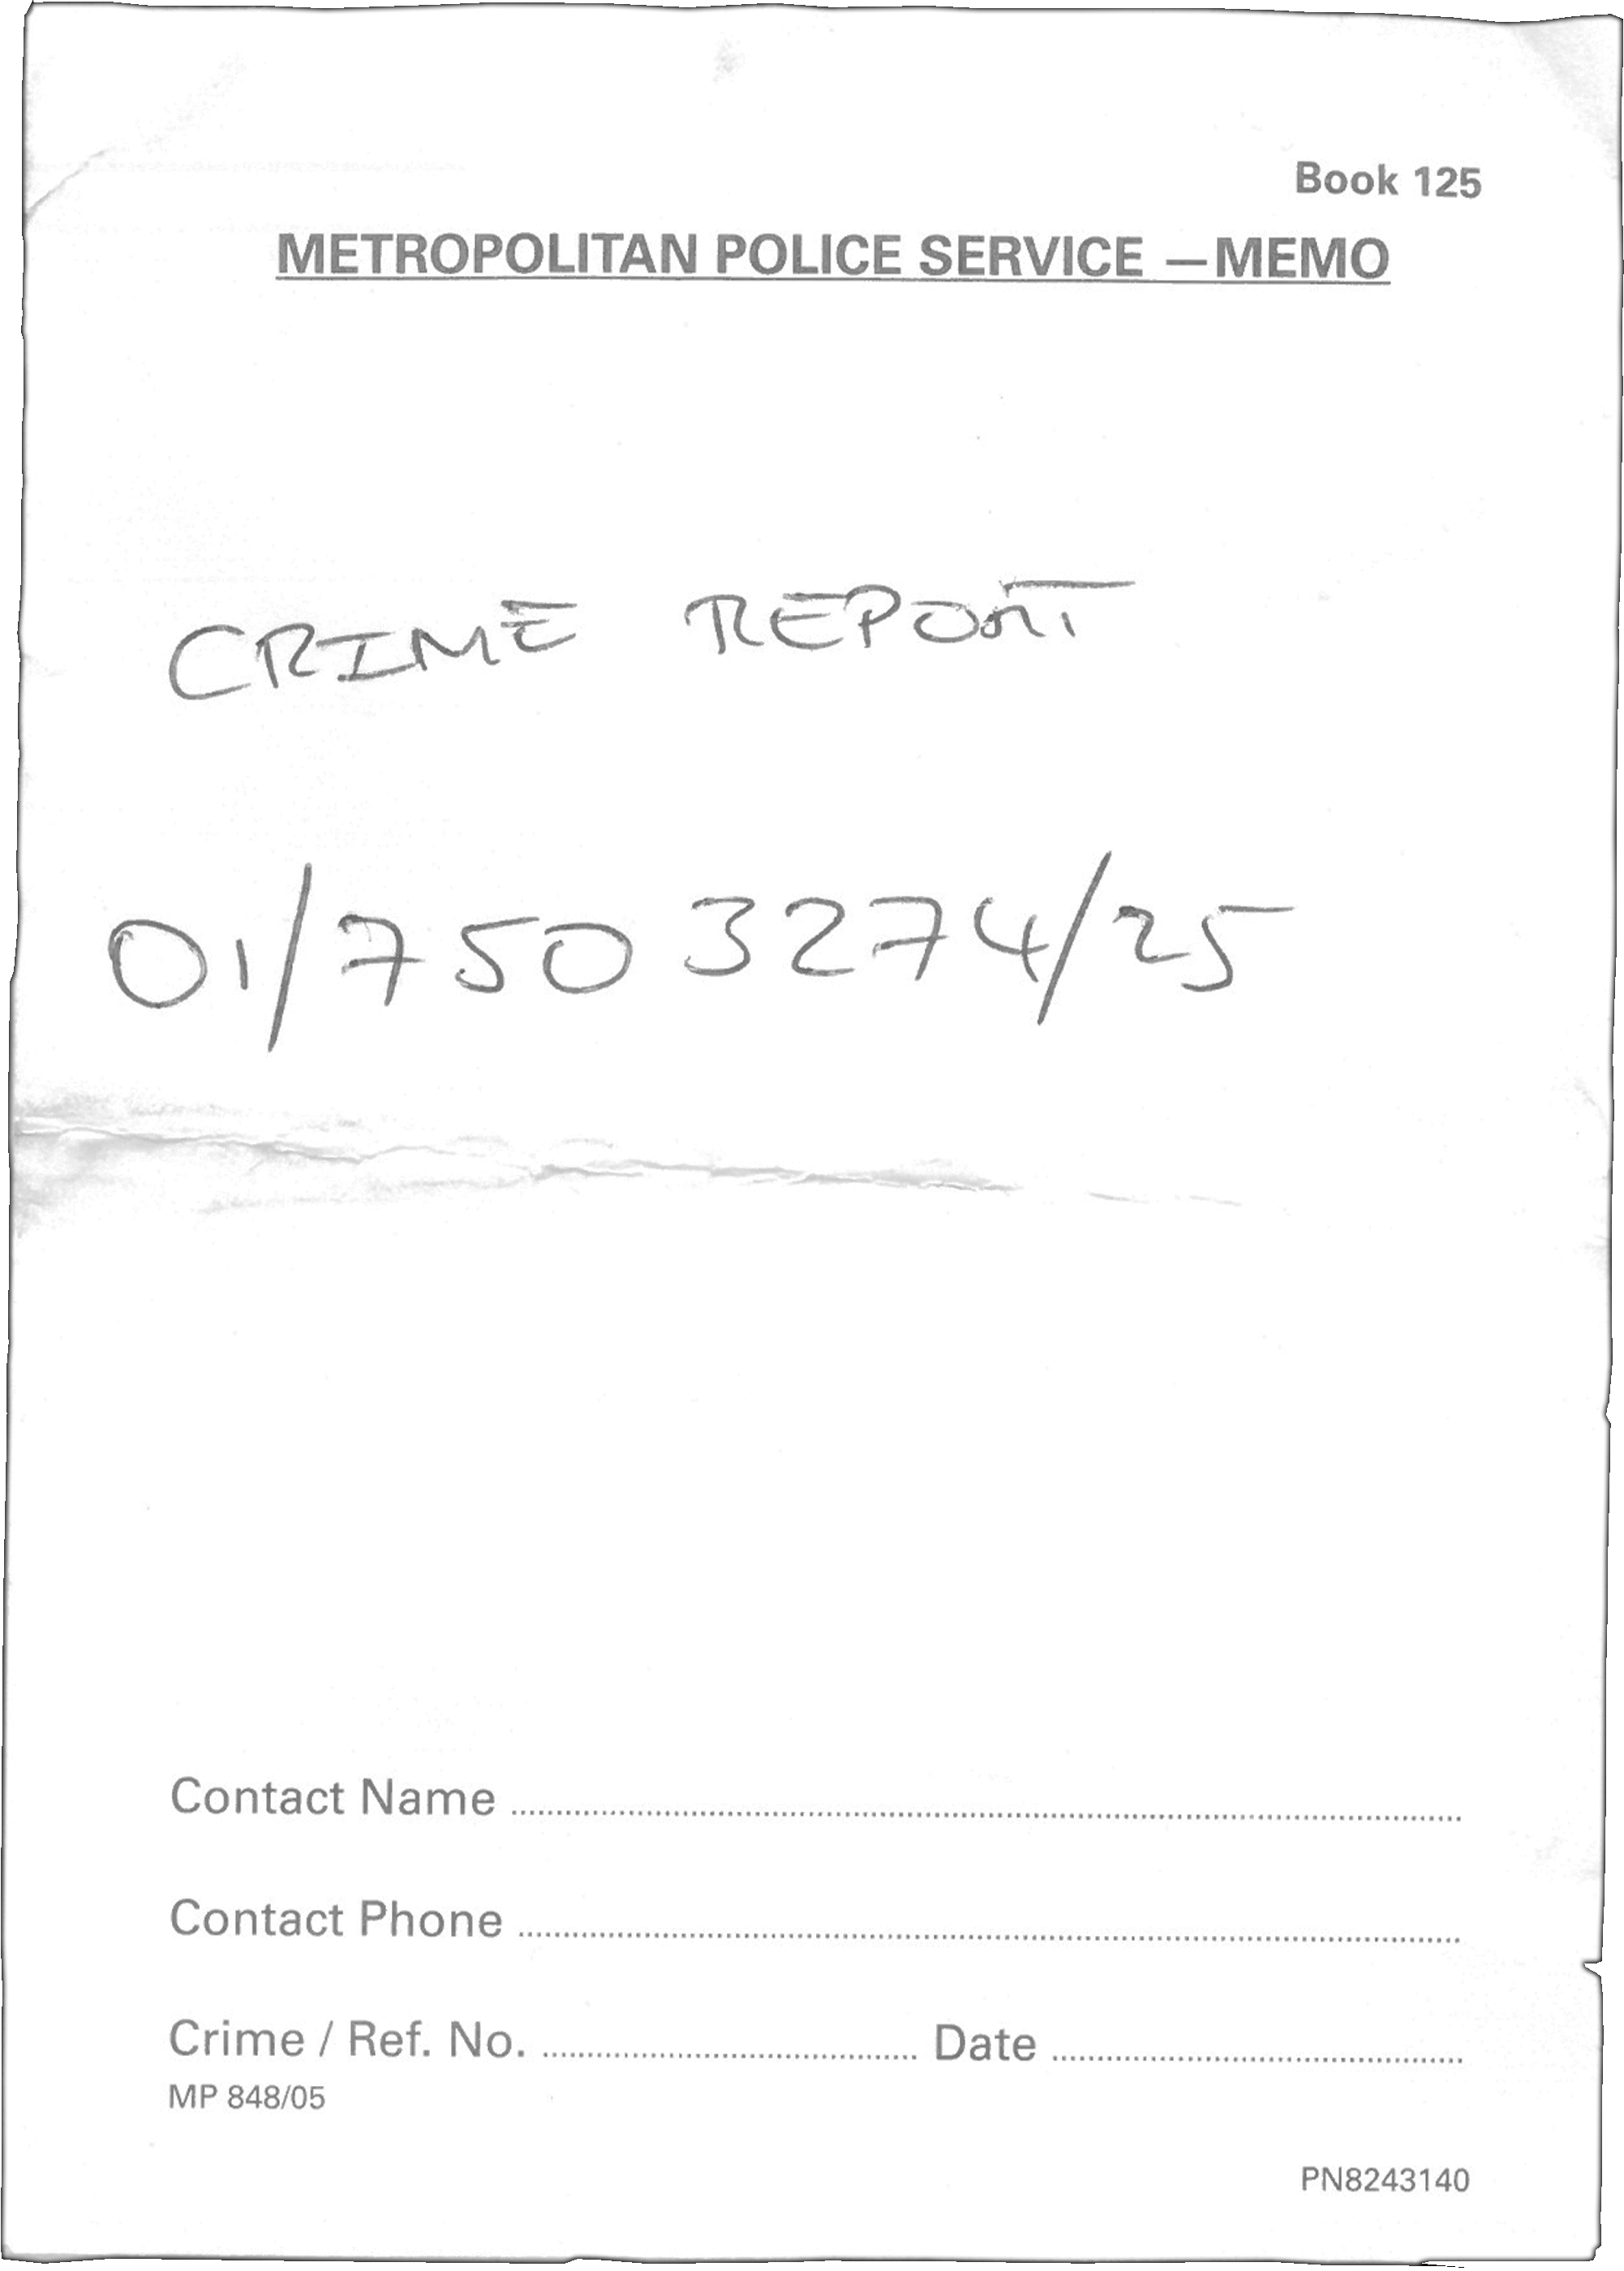 Book 125
METROPOLITAN POLICE SERVICE —MEMO
CRIME REPORT
01/7503274/25
Contact Name
Contact Phone
Crime / Ref. No. Date
MP 848/05
PN8243140